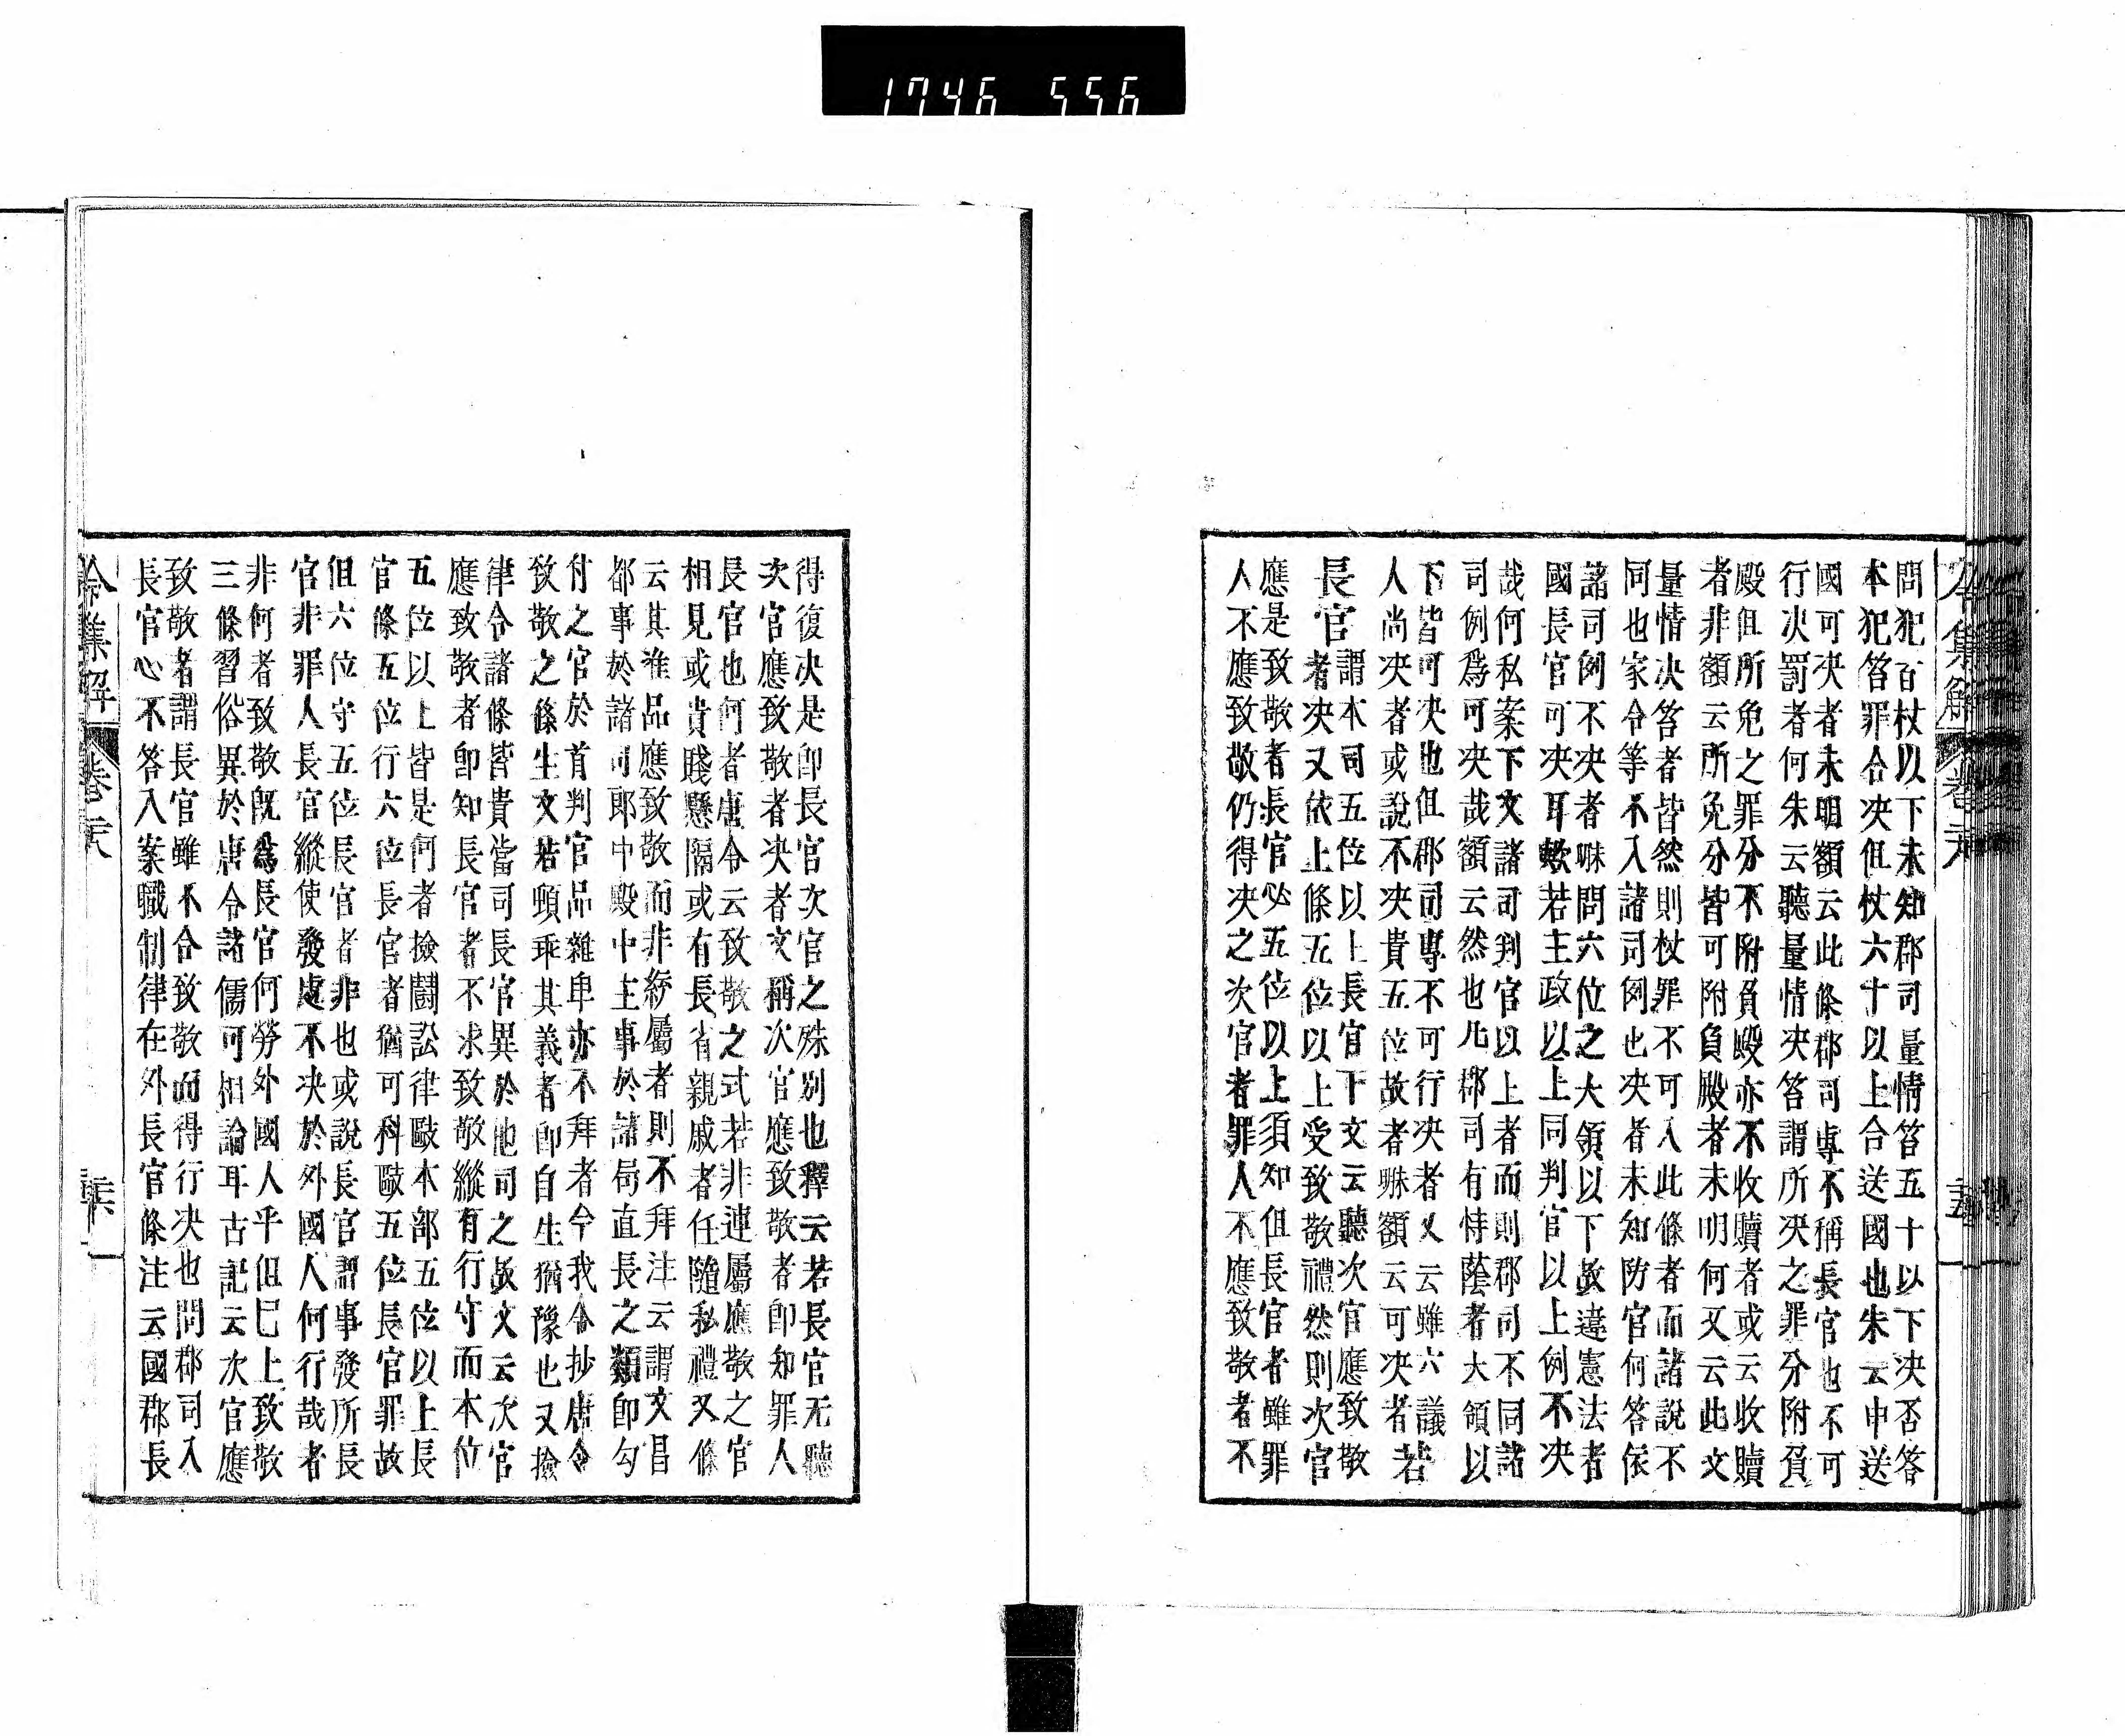 1746 556
問犯百杖以下未知郡司量情笞五十以下决否答
本犯笞罪合决但杖六十以上合送國也朱云申送
國可决者未明額云此條郡司專不稱長官也不可
行决罰者何朱云聽量情决笞謂所决之罪分附負
殿但所免之罪分不附負殿亦不收贖者或云收贖
者非額云所免分皆可附負殿者未明何又云此文
量情决笞者皆然則杖罪不可入此條者而諸說不
同也家令等不入諸司例也决者未知防官何答依
諸司例不决者㖨問六位之大領以下故違憲法者
國長官可决耳歟若主政以上同判官以上例不决
哉何私案下文諸司判官以上者而則郡司不同諸
司例爲可决哉額云然也凡郡司有恃蔭者大領以
下皆可决也但郡司專不可行决者又云雖六議
人尚决者或說不决貴五位故者㖨額云可决者若
長官謂本司五位以上長官下文云聽次官應致敬
者决又依上條五位以上受致敬禮然則次官
應是致敬者長官必五位以上須知但長官者雖罪
人不應致敬仍得决之次官者罪人不應致敬者不
令集解 卷二十八 二十五
得復决是卽長官次官之殊別也釋云若長官无聽
次官應致敬者决者文稱次官應致敬者卽知罪人
長官也何者唐令云致敬之式若非連屬應敬之官
相見或貴賤懸隔或有長省親戚者任隨私禮又條
云其准品應致敬而非統屬者則不拜注云謂文昌
都事於諸司郎中殿中主事於諸局直長之類卽勾
付之官於首判官品雜卑亦不拜者今我令抄唐令
致敬之條生文若頓乖其義者卽自生猶豫也又撿
律令諸條皆貴當司長官異於他司之故文云次官
應致敬者卽知長官者不求致敬縱有行守而本位
五位以上皆是何者撿鬪訟律毆本部五位以上長
官條五位行六位長官者猶可科毆五位長官罪故
但六位守五位長官者非也或說長官謂事發所長
官非罪人長官縱使發處不决於外國人何行哉者
非何者致敬旣爲長官何勞外國人乎但巳上致敬
三條習俗異於唐令諸儒可相論耳古記云次官應
致敬者謂長官雖不合致敬而得行决也問郡司入
長官心不答入案職制律在外長官條注云國郡長
令集解 卷二十八 二十六